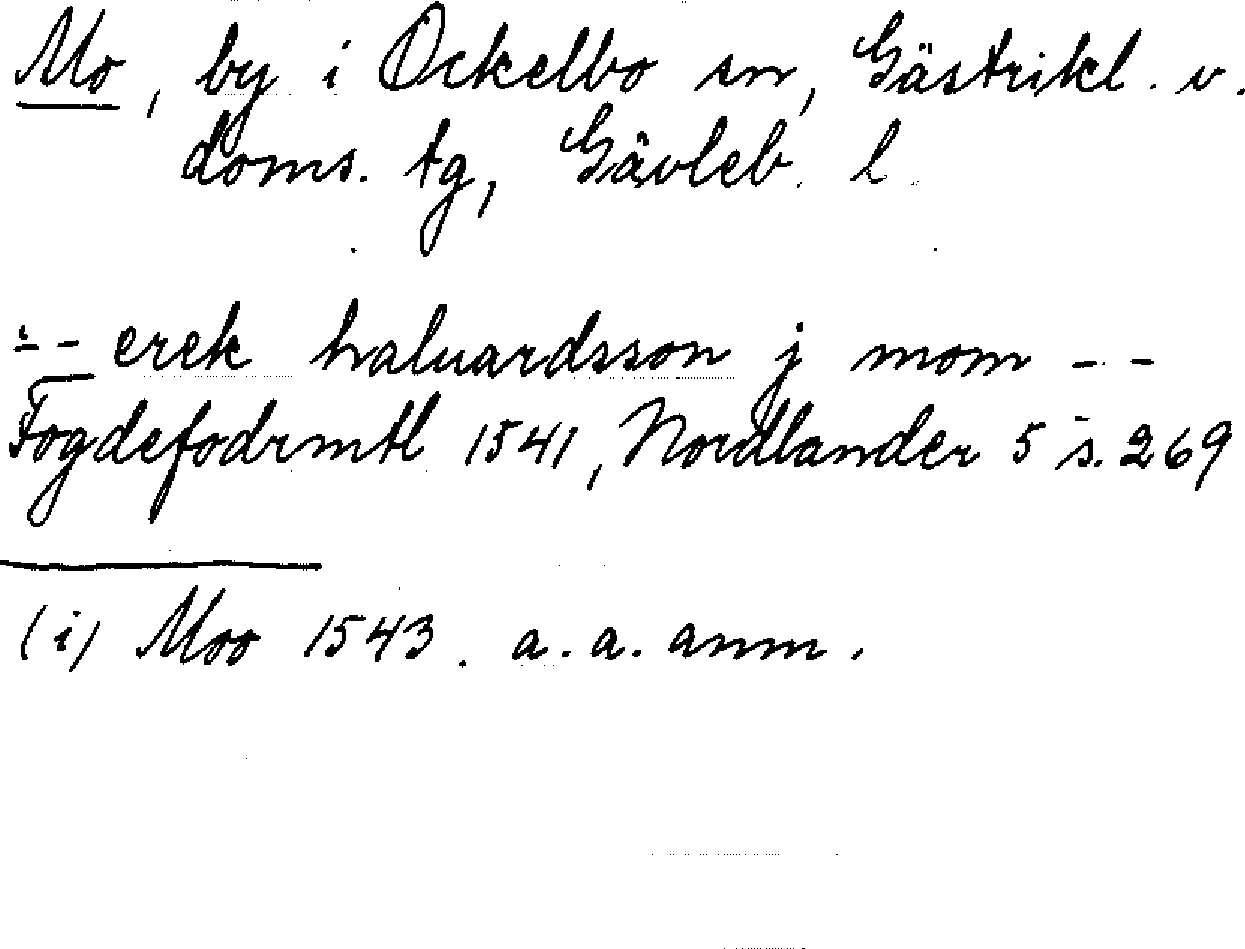 Mo, by i Ockelbo sn, Gästrikl. v.
doms. tg, Gävleb. l.
- - erek haluardsson j mom - -
Fogdefodrmtl 1541, Nordlander 5 s. 269
(i) Moo 1543. a. a. anm.